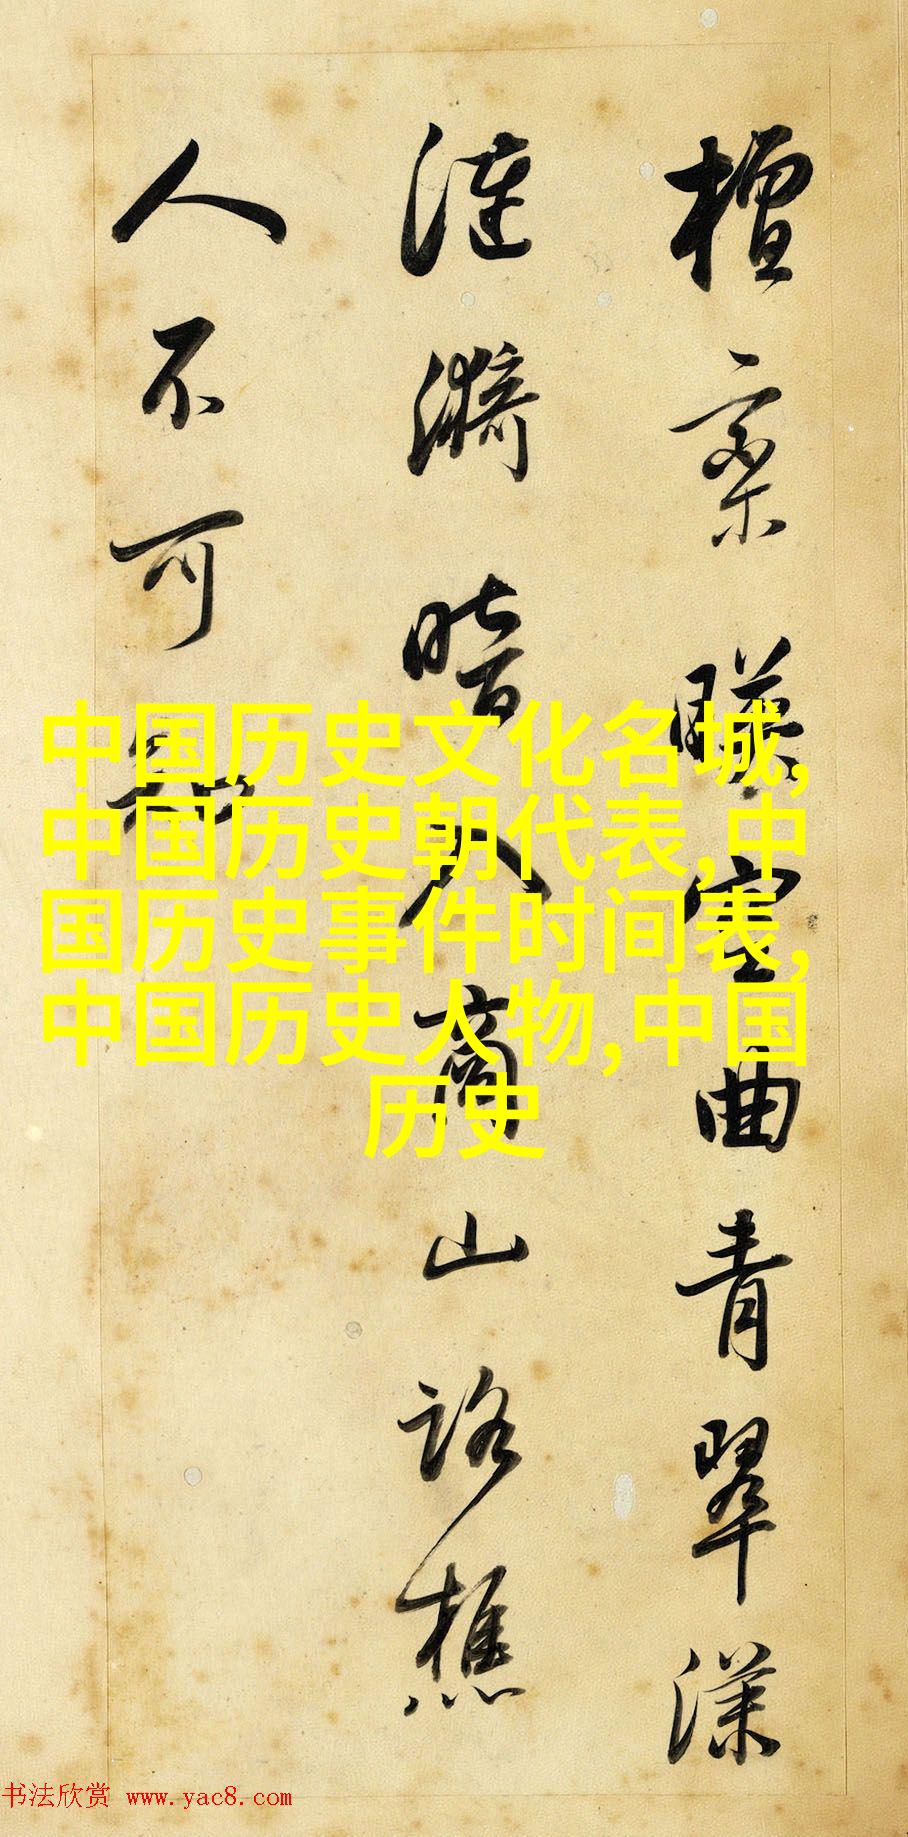 檀栾映空曲青翠漾
涟漪暗入商山路樵
人不可知
中国历史文化名城,
中国历史朝代表,中
国历史事件时间表,
中国历史人物,中国
历史
书法欣赏 www.yac8.com